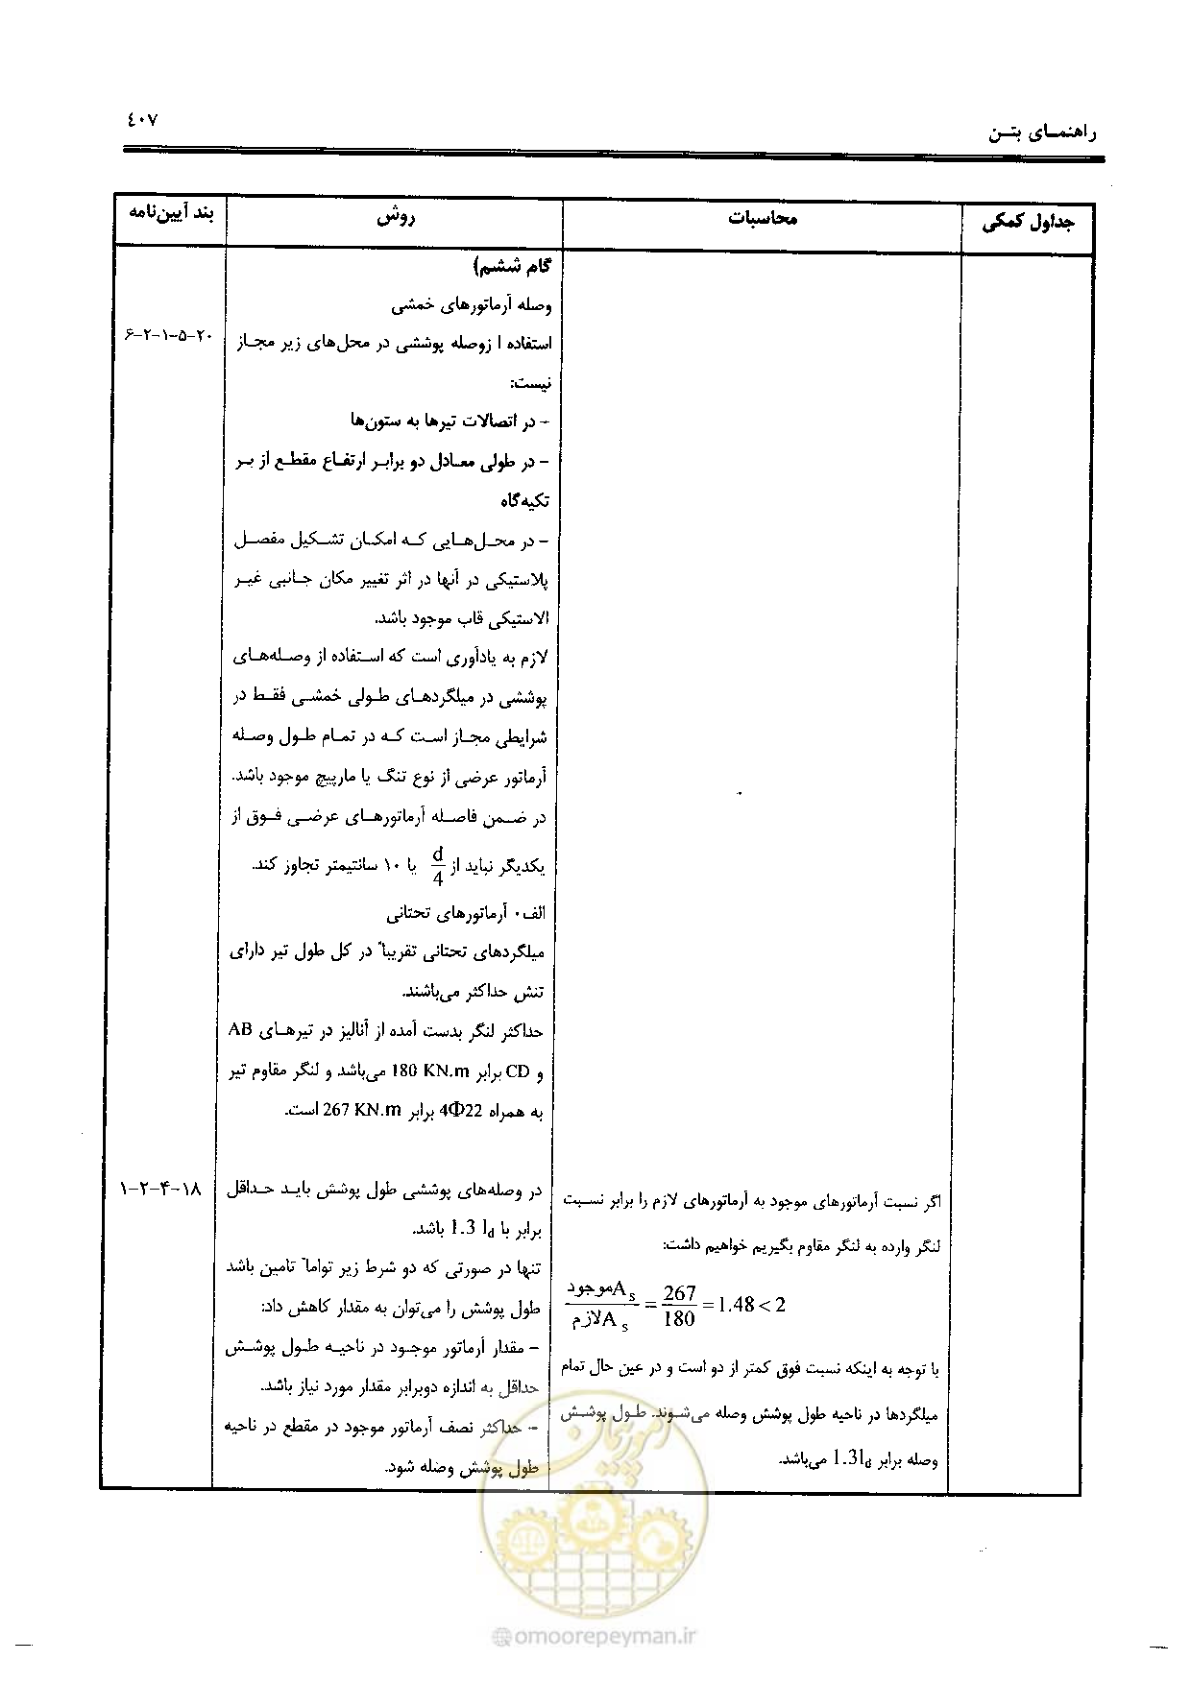 راهنمـای بتـن
٤٠٧
جداول کمکی
محاسبات
روش
بند آیین‌نامه
گام ششم)
وصله آرماتورهای خمشی
۶-۲-۱-۵-۲۰
استفاده ا زوصله پوششی در محل‌های زیر مجـاز
نیست:
- در اتصالات تیرها به ستون‌ها
- در طولی معـادل دو برابـر ارتفـاع مقطـع از بـر
تکیه‌گاه
- در محـل‌هـایی کـه امکـان تشـکیل مفصـل
پلاستیکی در آنها در اثر تغییر مکان جـانبی غیـر
الاستیکی قاب موجود باشد.
لازم به یادآوری است که اسـتفاده از وصـله‌هـای
پوششی در میلگردهـای طـولی خمشـی فقـط در
شرایطی مجـاز اسـت کـه در تمـام طـول وصـله
آرماتور عرضی از نوع تنگ یا مارپیچ موجود باشد.
در ضـمن فاصـله آرماتورهـای عرضـی فـوق از
یکدیگر نباید از d/4 یا ۱۰ سانتیمتر تجاوز کند.
الف٠ آرماتورهای تحتانی
میلگردهای تحتانی تقریباً در کل طول تیر دارای
تنش حداکثر می‌باشند.
حداکثر لنگر بدست آمده از آنالیز در تیرهـای AB
و CD برابر 180 KN.m می‌باشد و لنگر مقاوم تیر
به همراه 4Φ22 برابر 267 KN.m است.
۱-۲-۴-۱۸
در وصله‌های پوششی طول پوشش باید حـداقل
برابر با 1.3 ld باشد.
تنها در صورتی که دو شرط زیر تواماً تامین باشد
طول پوشش را می‌توان به مقدار کاهش داد:
- مقدار آرماتور موجـود در ناحیـه طـول پوشـش
حداقل به اندازه دوبرابر مقدار مورد نیاز باشد.
- حداکثر نصف آرماتور موجود در مقطع در ناحیه
طول پوشش وصله شود.
اگر نسبت آرماتورهای موجود به آرماتورهای لازم را برابر نسبت
لنگر وارده به لنگر مقاوم بگیریم خواهیم داشت:
As موجود / As لازم = 267/180 = 1.48 < 2
با توجه به اینکه نسبت فوق کمتر از دو است و در عین حال تمام
میلگردها در ناحیه طول پوشش وصله می‌شـوند. طـول پوشـش
وصله برابر 1.3ld می‌باشد.
امور پیمان
@omoorepeyman.ir